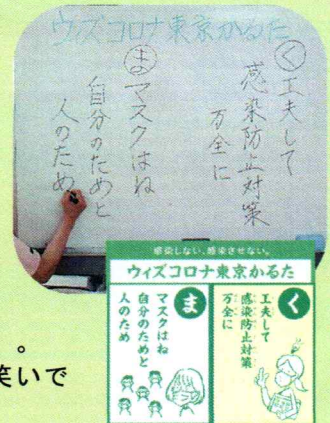 ウィズコロナ東京かるた
く
工夫して
感染防止対策
万全に
ま
マスクはね
自分のためと
人のため
感染しない、感染させない。
ウィズコロナ東京かるた
く
工夫して
感染防止対策
万全に
ま
マスクはね
自分のためと
人のため
。
笑いで